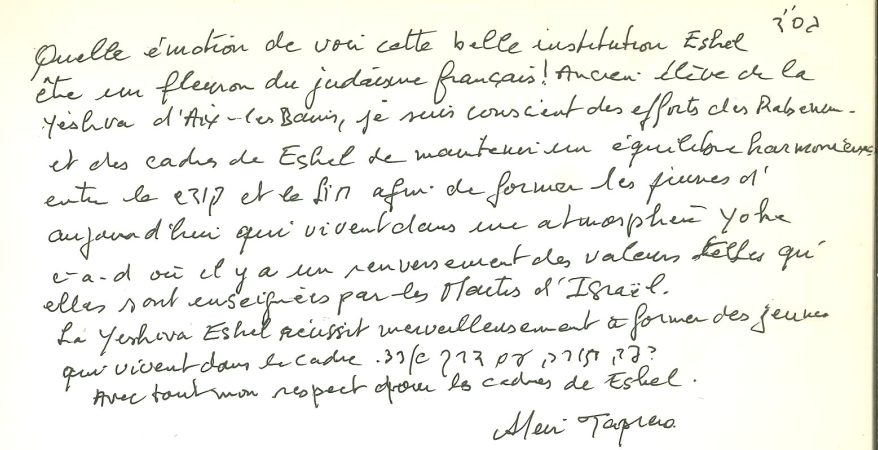 בס״ד
Quelle émotion de voir cette belle institution Eshel
être un fleuron du judaïsme français! Ancien élève de la
Yéshiva d'Aix-les-Bains, je suis conscient des efforts des Rabanim
et des cadres de Eshel de maintenir un équilibre harmonieux
entre le קודש et le חול afin de former les jeunes d'
aujourd'hui qui vivent dans une atmosphère
c-a-d où il y a un renversement des valeurs telles qu'
elles sont enseignées par les Maîtres d'Israël.
La Yeshiva Eshel réussit merveilleusement à former des jeunes
qui vivent dans le cadre
Avec tout mon respect pour les cadres de Eshel.